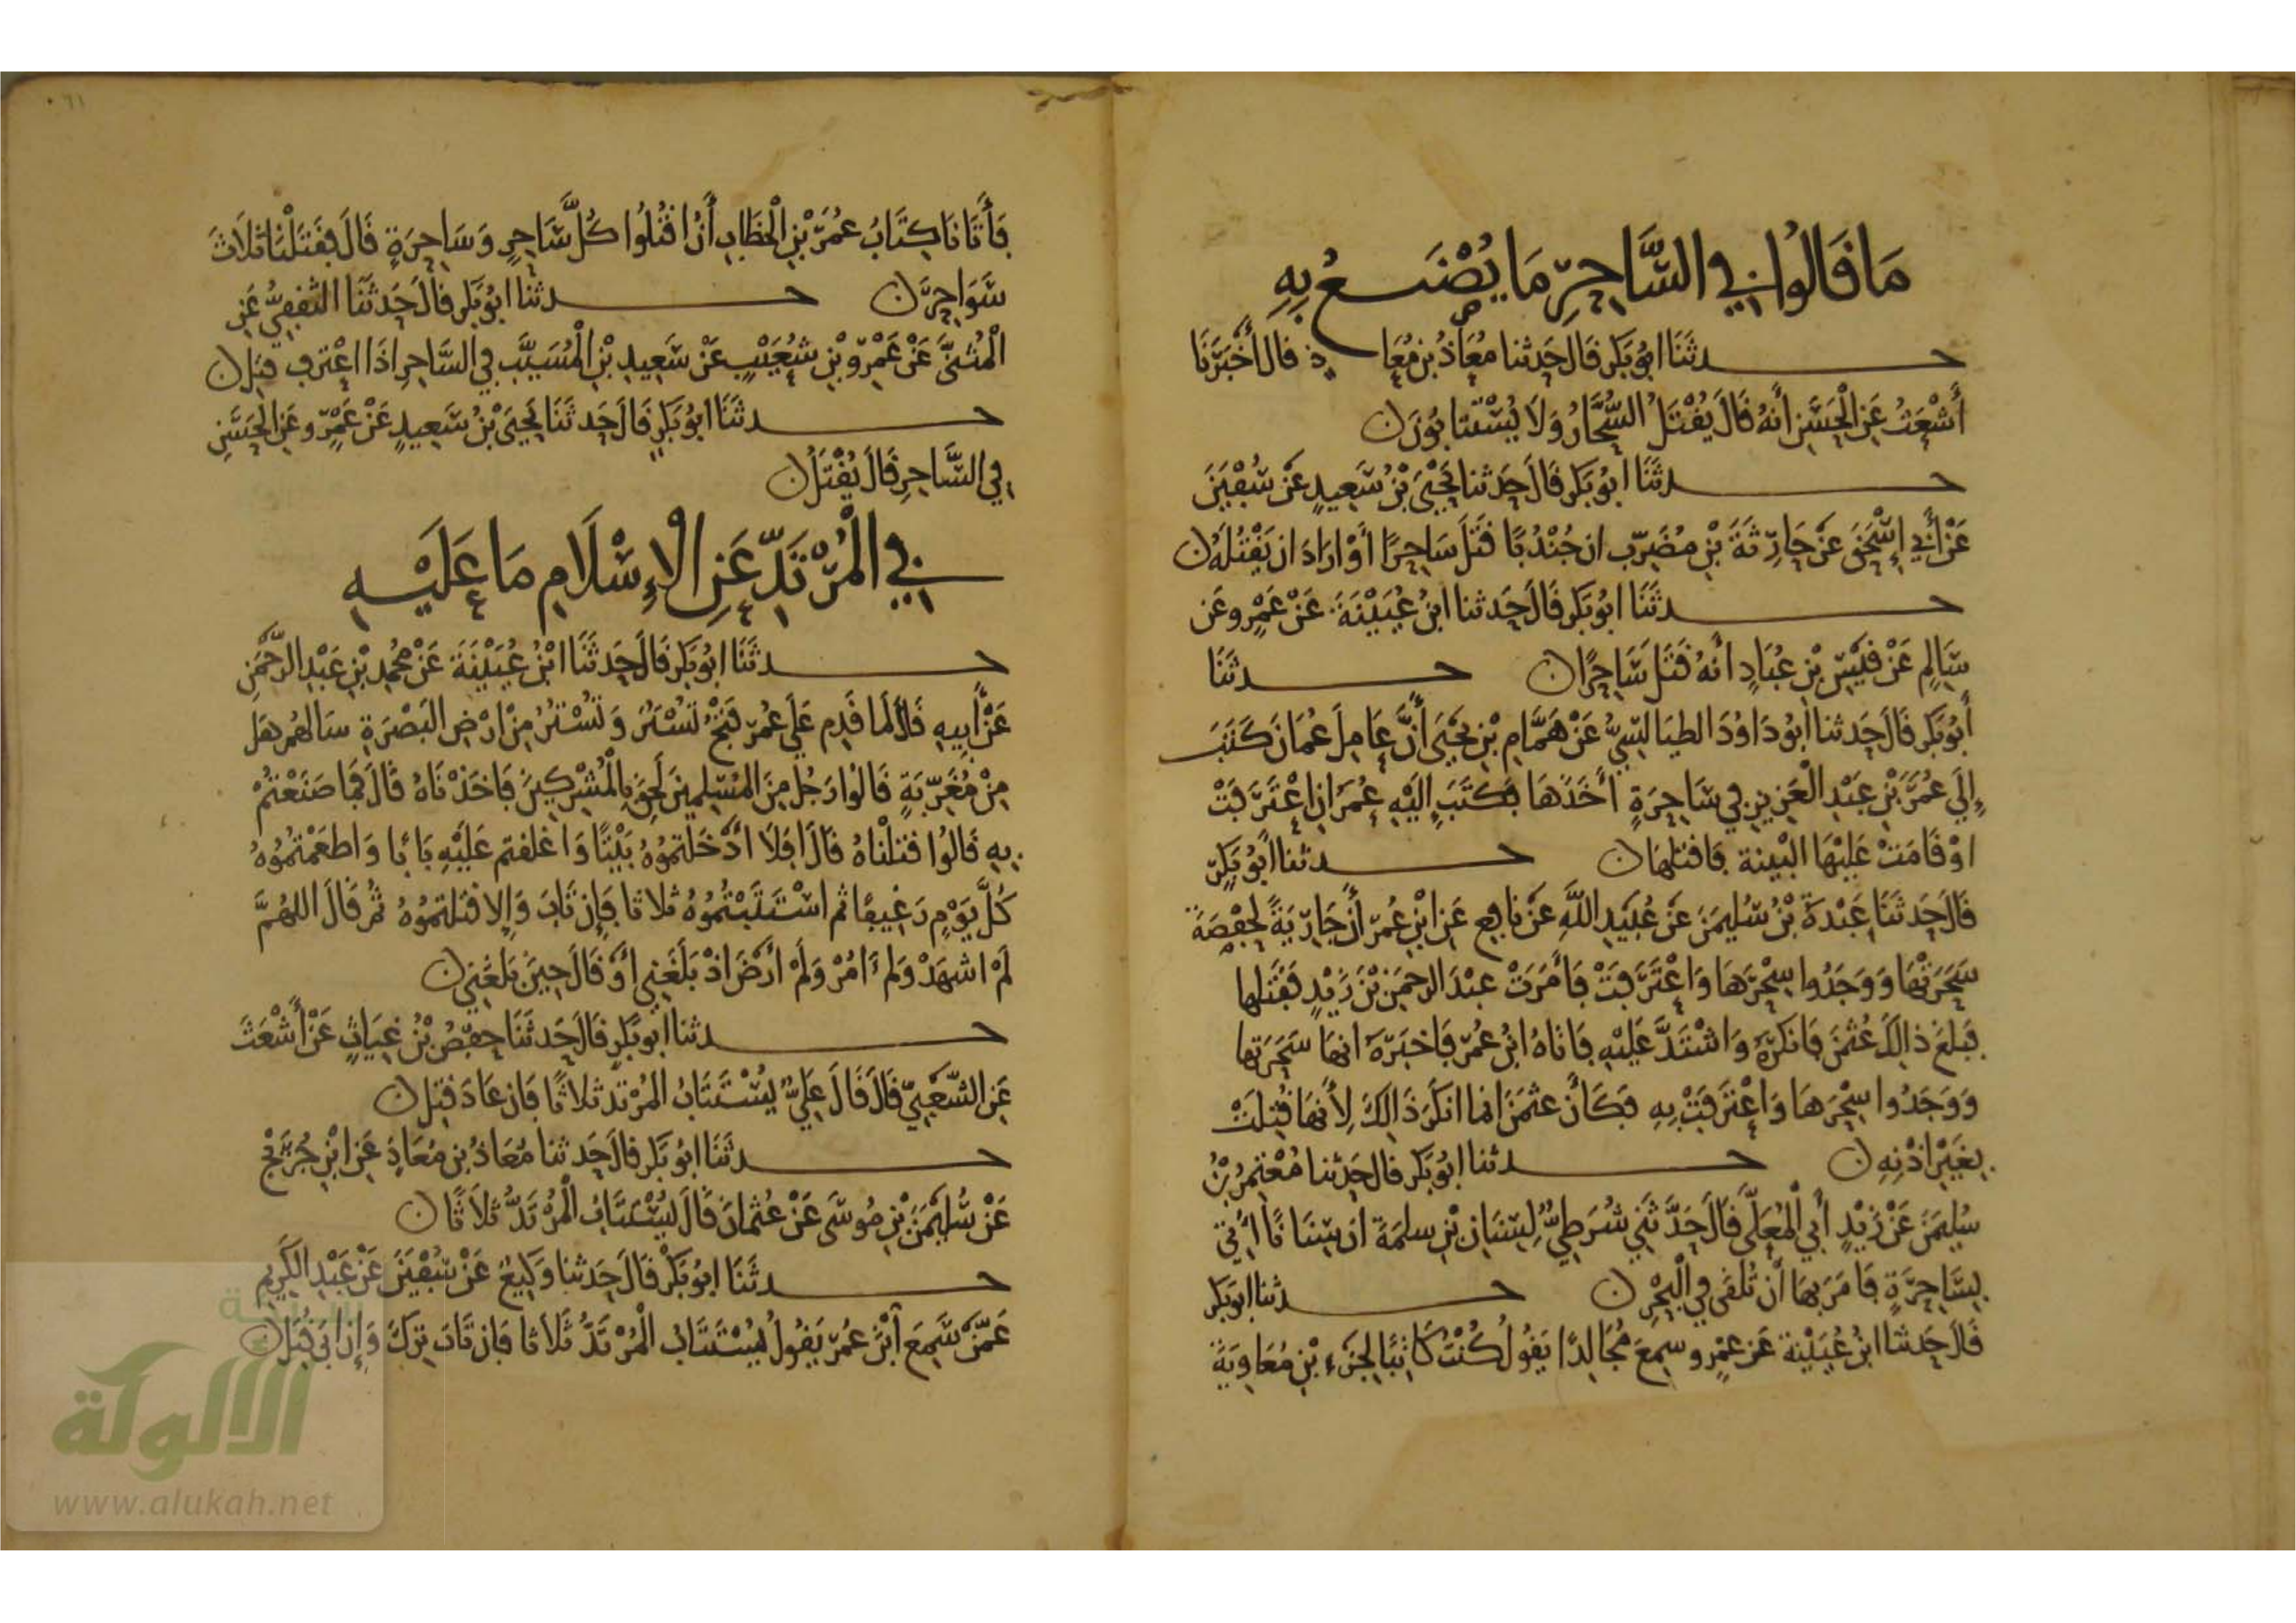 مَا قَالُوا فِي السَّاحِرِ مَا يُصْنَعُ بِهِ
حدثَنَا ابُو بَكر قَال حَدثنا مُعَاذُ بن مُعَاذٍ قال أَخْبَرَنَا
أَشْعَثُ عَنِ الْحَسَنِ أنهُ قَالَ يُقْتَلُ السُّحَّارُ وَلَا يُسْتَتَابُونَ
حدثَنَا ابُو بَكر قَالَ حَدثنا يَحْيَى بْنُ سَعِيدٍ عَنْ سُفْيَنَ
عَنْ أَبِي إِسْحَقَ عَنْ حَارِثَةَ بْنِ مُضَرِّب ان جُنْدُبًا قَتَلَ سَاحِرًا أَوْ ارَادَ ان يَقْتُلَهُ
حدثَنَا ابُو بَكر قَالَ حَدثنا ابنُ عُيَيْنَةَ عَنْ عَمْرٍو عَن
سَالِمٍ عَنْ قَيْسِ بْنِ عُبَادٍ أنهُ قَتَلَ سَاحِرًا حدثَنَا
أَبُو بَكر قَالَ حَدثنا ابُو دَاوُدَ الطيَالسِيُّ عَنْ هَمَّامِ بْنِ يَحْيَى أَنَّ عَامِلَ عُمَانَ كَتَبَ
إِلَى عُمَرَ بْنِ عَبْدِ الْعَزِيزِ فِي سَاحِرَةٍ أَخَذَهَا فَكَتَبَ إِلَيْهِ عُمَرُ إِنِ اعْتَرَفَتْ
اوْ قَامَتْ عَلَيْهَا البْينة فَاقتلهَا حدثنا أَبُو بَكرٍ
قَالَ حَدثَنَا عَبْدَةُ بْنُ سُلَيمَنَ عَنْ عُبَيْدِ اللَّهِ عَنْ نَافِعٍ عَنِ ابْنِ عُمَرَ أَنَّ جَارِيَةً لِحَفْصَةَ
سَحَرَتْهَا وَوَجَدُوا سِحْرَهَا وَاعْتَرَفَتْ فَأَمَرَتْ عبْدَ الرحمَنِ بْنَ زَيْدٍ فَقَتَلها
فَبَلَغَ ذالِكَ عُثْمَنَ فَانكَرَهُ وَاشْتَدَّ عَلَيْهِ فَاتَاهُ ابْنُ عُمَرَ فَاخبَرَهُ انهَا سَحَرَتها
وَوَجَدُوا سِحْرَهَا وَاعْتَرَفَتْ بِهِ فَكَأَنَّ عثمَنَ انما انكَرَ ذَالِكَ لِأَنهَا قُتِلَتْ
بِغَيْرِ اذْنِهِ حدثنا ابُو بَكر قال حَدثنا مُعْتمِرُ بْنُ
سُلَيمَنَ عَنْ زَيْدٍ أَبِي الْمُعَلَّى قَالَ حَدَّثَنِي شُرَطِيٌّ لِسِنَانِ بْنِ سلمَةَ ان سِنَانًا أُتِيَ
بِسَاحِرَةٍ فَامَرَ بهَا أَنْ تُلْقَى فِي الْبَحْرِ حدثنا ابو بَكر
قَالَ حَدثنا ابنُ عُيَيْنة عَن عَمْرٍو سمِعَ مُجَالِدًا يَقُولُ كُنْتُ كَاتِبًا لِجَزءِ بْنِ مُعَاوِيَةَ
فَأَتَانَا كِتَابُ عُمَرَ بْنِ الْخَطَّابِ أَنُ اقْتُلُوا كُلَّ سَاحِرٍ وَسَاحِرَةٍ قَالَ فَقَتَلْنَا ثلَاثَ
سَوَاحِرَ حدثنا ابُو بَكر قالَ حَدثنَا الثقفِيُّ عَنِ
الْمُثنَّى عَنْ عَمْرِو بْنِ شُعَيْبٍ عَنْ سَعِيدِ بْنِ الْمُسَيَّبِ فِي السَّاحِرِ اذَا اعْترف قتِلَ
حدثَنَا ابُو بَكرٍ قَالَ حَدثَنَا يَحْيَى بْنُ سَعِيدٍ عَنْ عَمْرٍو عَنِ الْحَسَنِ
فِي السَّاحِرِ قَالَ يُقْتَلُ
فِي الْمُرْتَدِّ عَنِ الْإِسْلَامِ مَا عَلَيْهِ
حدثَنَا ابُو بَكر قَالَ حَدثَنَا ابْنُ عُيَيْنَةَ عَنْ مُحمدِ بْنِ عَبْدِ الرَّحْمَنِ
عَنْ أَبِيهِ قَالَ لَما قَدِمَ عَلَى عُمَرَ فَتْحُ تُسْتَرَ وَتُسْتَرُ مِنْ ارْضِ البَصْرَةِ سَالهُمْ هَلْ
مِنْ مُغَرِّبَةٍ قَالوُا رَجُل مِنَ المُسْلِمِينَ لَحِقَ بِالْمُشْرِكِينَ فَاخَذْنَاهُ قَالَ فَمَا صَنَعْتُمْ
بِهِ قَالُوا قتلْنَاهُ قَالَ افَلَا ادْخَلتمُوهُ بَيْتًا وَاغلقتم عَلَيْهِ بَابًا وَاطعَمْتُمُوهُ
كُلَّ يَوْمٍ رَغِيفًا ثم اسْتَتَبْتُمُوهُ ثلَاثا فَإِن تَابَ وَإِلا قتلتمُوهُ ثُمَّ قَالَ اللهُمَّ
لَمْ اشهَدْ وَلم ءَامُرْ وَلَمْ ارْضَ اذْ بَلَغَنِي أَوْ قَالَ حِينَ بَلَغَنِي
حدثنا ابو بَكرٍ قَالَ حَدثَنَا حَفصُ بْنُ غِيَاثٍ عَنْ أَشْعَثَ
عَنِ الشَّعْبِيِّ قَالَ قَالَ عَلِيٌّ يُسْتَتَابُ المُرْتد ثلاثًا فَان عَادَ قتِلَ
حدثَنَا ابُو بَكر قالَ حَدثنا مُعَاذُ بن مُعَاذٍ عَنِ ابْنِ جُرَيْجٍ
عَنْ سُلَيْمَنَ بْنِ مُوسَى عَنْ عُثمانَ قَالَ يُسْتَتَابُ الْمُرْتَدُّ ثلَاثًا
حدثَنَا ابُو بَكْر قَالَ حَدثنا وَكِيعٌ عَنْ سُفْيَنَ عَنْ عَبْدِ الكَرِيمِ
عَمَّنْ سَمِعَ ابْنَ عُمَرَ يَقُولُ يُسْتَتَابُ الْمُرْتَدُّ ثَلَاثا فَان تَابَ تُرِكَ وَإِن ابَى قُتِلَ
الالوكة
www.alukah.net